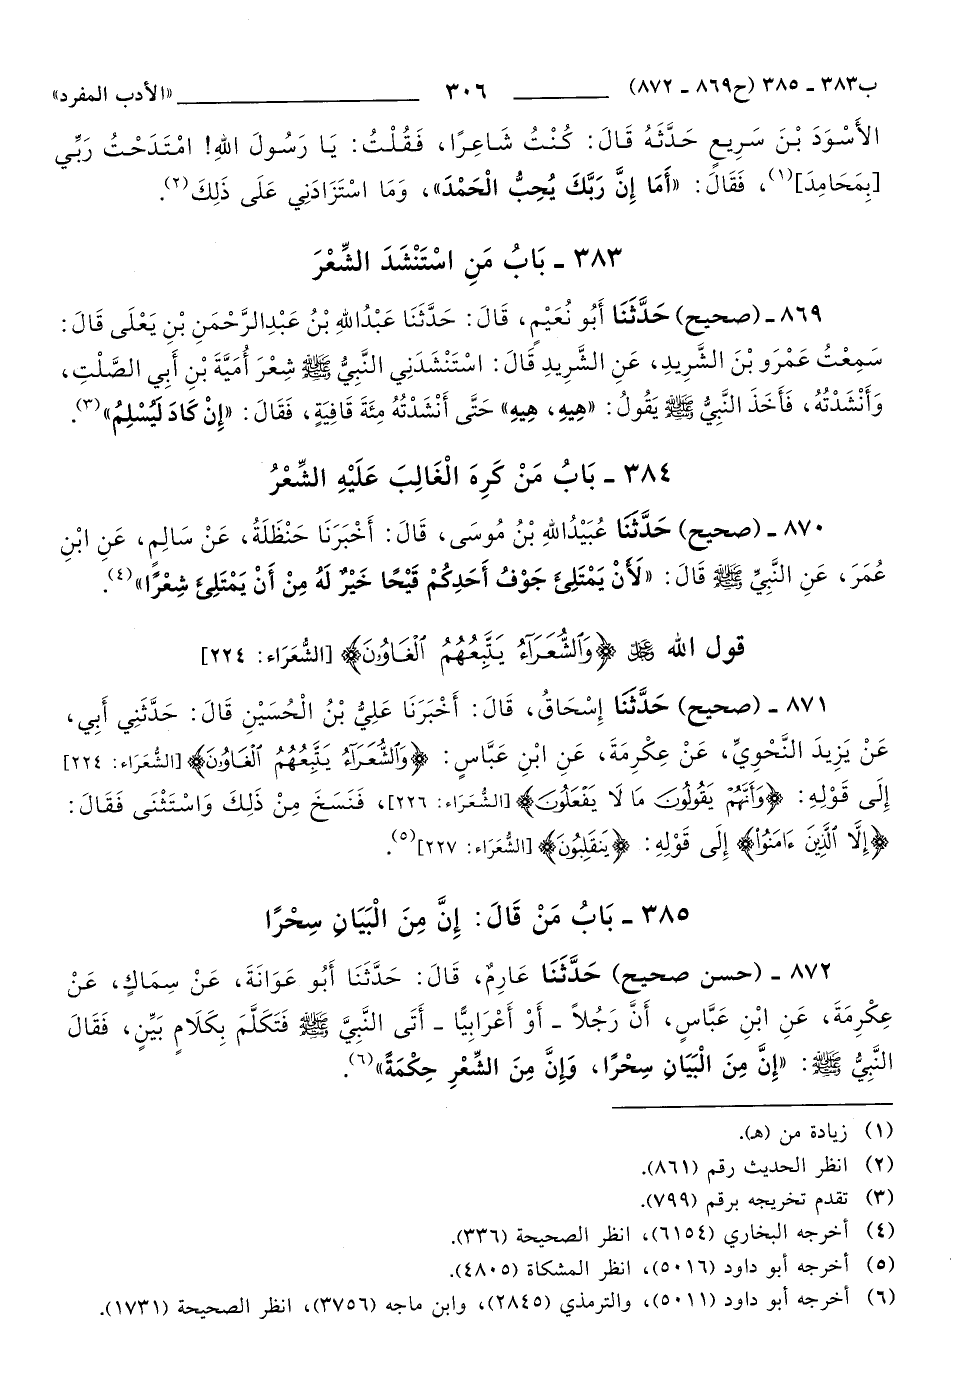 ب٣٨٣ ـ ٣٨٥ (ح٨٦٩ ـ ٨٧٢) ٣٠٦ «الأدب المفرد»
الأَسْوَدَ بْنَ سَرِيعٍ حَدَّثَهُ قَالَ: كُنْتُ شَاعِرًا، فَقُلْتُ: يَا رَسُولَ اللهِ! امْتَدَحْتُ رَبِّي
[بِمَحَامِدَ](١)، فَقَالَ: «أَمَا إِنَّ رَبَّكَ يُحِبُّ الْحَمْدَ»، وَمَا اسْتَزَادَنِي عَلَى ذَلِكَ(٢).
٣٨٣ ـ بَابُ مَنِ اسْتَنْشَدَ الشِّعْرَ
٨٦٩ ـ (صحيح) حَدَّثَنَا أَبُو نُعَيْمٍ، قَالَ: حَدَّثَنَا عَبْدُاللهِ بْنُ عَبْدِالرَّحْمَنِ بْنِ يَعْلَى قَالَ:
سَمِعْتُ عَمْرَو بْنَ الشَّرِيدِ، عَنِ الشَّرِيدِ قَالَ: اسْتَنْشَدَنِي النَّبِيُّ ﷺ شِعْرَ أُمَيَّةَ بْنِ أَبِي الصَّلْتِ،
وَأَنْشَدْتُهُ، فَأَخَذَ النَّبِيُّ ﷺ يَقُولُ: «هِيهِ، هِيهِ» حَتَّى أَنْشَدْتُهُ مِئَةَ قَافِيَةٍ، فَقَالَ: «إِنْ كَادَ لَيُسْلِمُ»(٣).
٣٨٤ ـ بَابُ مَنْ كَرِهَ الْغَالِبَ عَلَيْهِ الشِّعْرُ
٨٧٠ ـ (صحيح) حَدَّثَنَا عُبَيْدُاللهِ بْنُ مُوسَى، قَالَ: أَخْبَرَنَا حَنْظَلَةُ، عَنْ سَالِمٍ، عَنِ ابْنِ
عُمَرَ، عَنِ النَّبِيِّ ﷺ قَالَ: «لَأَنْ يَمْتَلِئَ جَوْفُ أَحَدِكُمْ قَيْحًا خَيْرٌ لَهُ مِنْ أَنْ يَمْتَلِئَ شِعْرًا»(٤).
قول الله ﷻ ﴿وَٱلشُّعَرَآءُ يَتَّبِعُهُمُ ٱلْغَاوُۥنَ﴾ [الشُّعَرَاء: ٢٢٤]
٨٧١ ـ (صحيح) حَدَّثَنَا إِسْحَاقُ، قَالَ: أَخْبَرَنَا عَلِيُّ بْنُ الْحُسَيْنِ قَالَ: حَدَّثَنِي أَبِي،
عَنْ يَزِيدَ النَّحْوِيِّ، عَنْ عِكْرِمَةَ، عَنِ ابْنِ عَبَّاسٍ: ﴿وَٱلشُّعَرَآءُ يَتَّبِعُهُمُ ٱلْغَاوُۥنَ﴾ [الشُّعَرَاء: ٢٢٤]
إِلَى قَوْلِهِ: ﴿وَأَنَّهُمْ يَقُولُونَ مَا لَا يَفْعَلُونَ﴾ [الشُّعَرَاء: ٢٢٦]، فَنَسَخَ مِنْ ذَلِكَ وَاسْتَثْنَى فَقَالَ:
﴿إِلَّا ٱلَّذِينَ ءَامَنُوا۟﴾ إِلَى قَوْلِهِ: ﴿يَنقَلِبُونَ﴾ [الشُّعَرَاء: ٢٢٧](٥).
٣٨٥ ـ بَابُ مَنْ قَالَ: إِنَّ مِنَ الْبَيَانِ سِحْرًا
٨٧٢ ـ (حسن صحيح) حَدَّثَنَا عَارِمٌ، قَالَ: حَدَّثَنَا أَبُو عَوَانَةَ، عَنْ سِمَاكٍ، عَنْ
عِكْرِمَةَ، عَنِ ابْنِ عَبَّاسٍ، أَنَّ رَجُلاً ـ أَوْ أَعْرَابِيًّا ـ أَتَى النَّبِيَّ ﷺ فَتَكَلَّمَ بِكَلَامٍ بَيِّنٍ، فَقَالَ
النَّبِيُّ ﷺ: «إِنَّ مِنَ الْبَيَانِ سِحْرًا، وَإِنَّ مِنَ الشِّعْرِ حِكْمَةً»(٦).
(١) زيادة من (هـ).
(٢) انظر الحديث رقم (٨٦١).
(٣) تقدم تخريجه برقم (٧٩٩).
(٤) أخرجه البخاري (٦١٥٤)، انظر الصحيحة (٣٣٦).
(٥) أخرجه أبو داود (٥٠١٦)، انظر المشكاة (٤٨٠٥).
(٦) أخرجه أبو داود (٥٠١١)، والترمذي (٢٨٤٥)، وابن ماجه (٣٧٥٦)، انظر الصحيحة (١٧٣١).